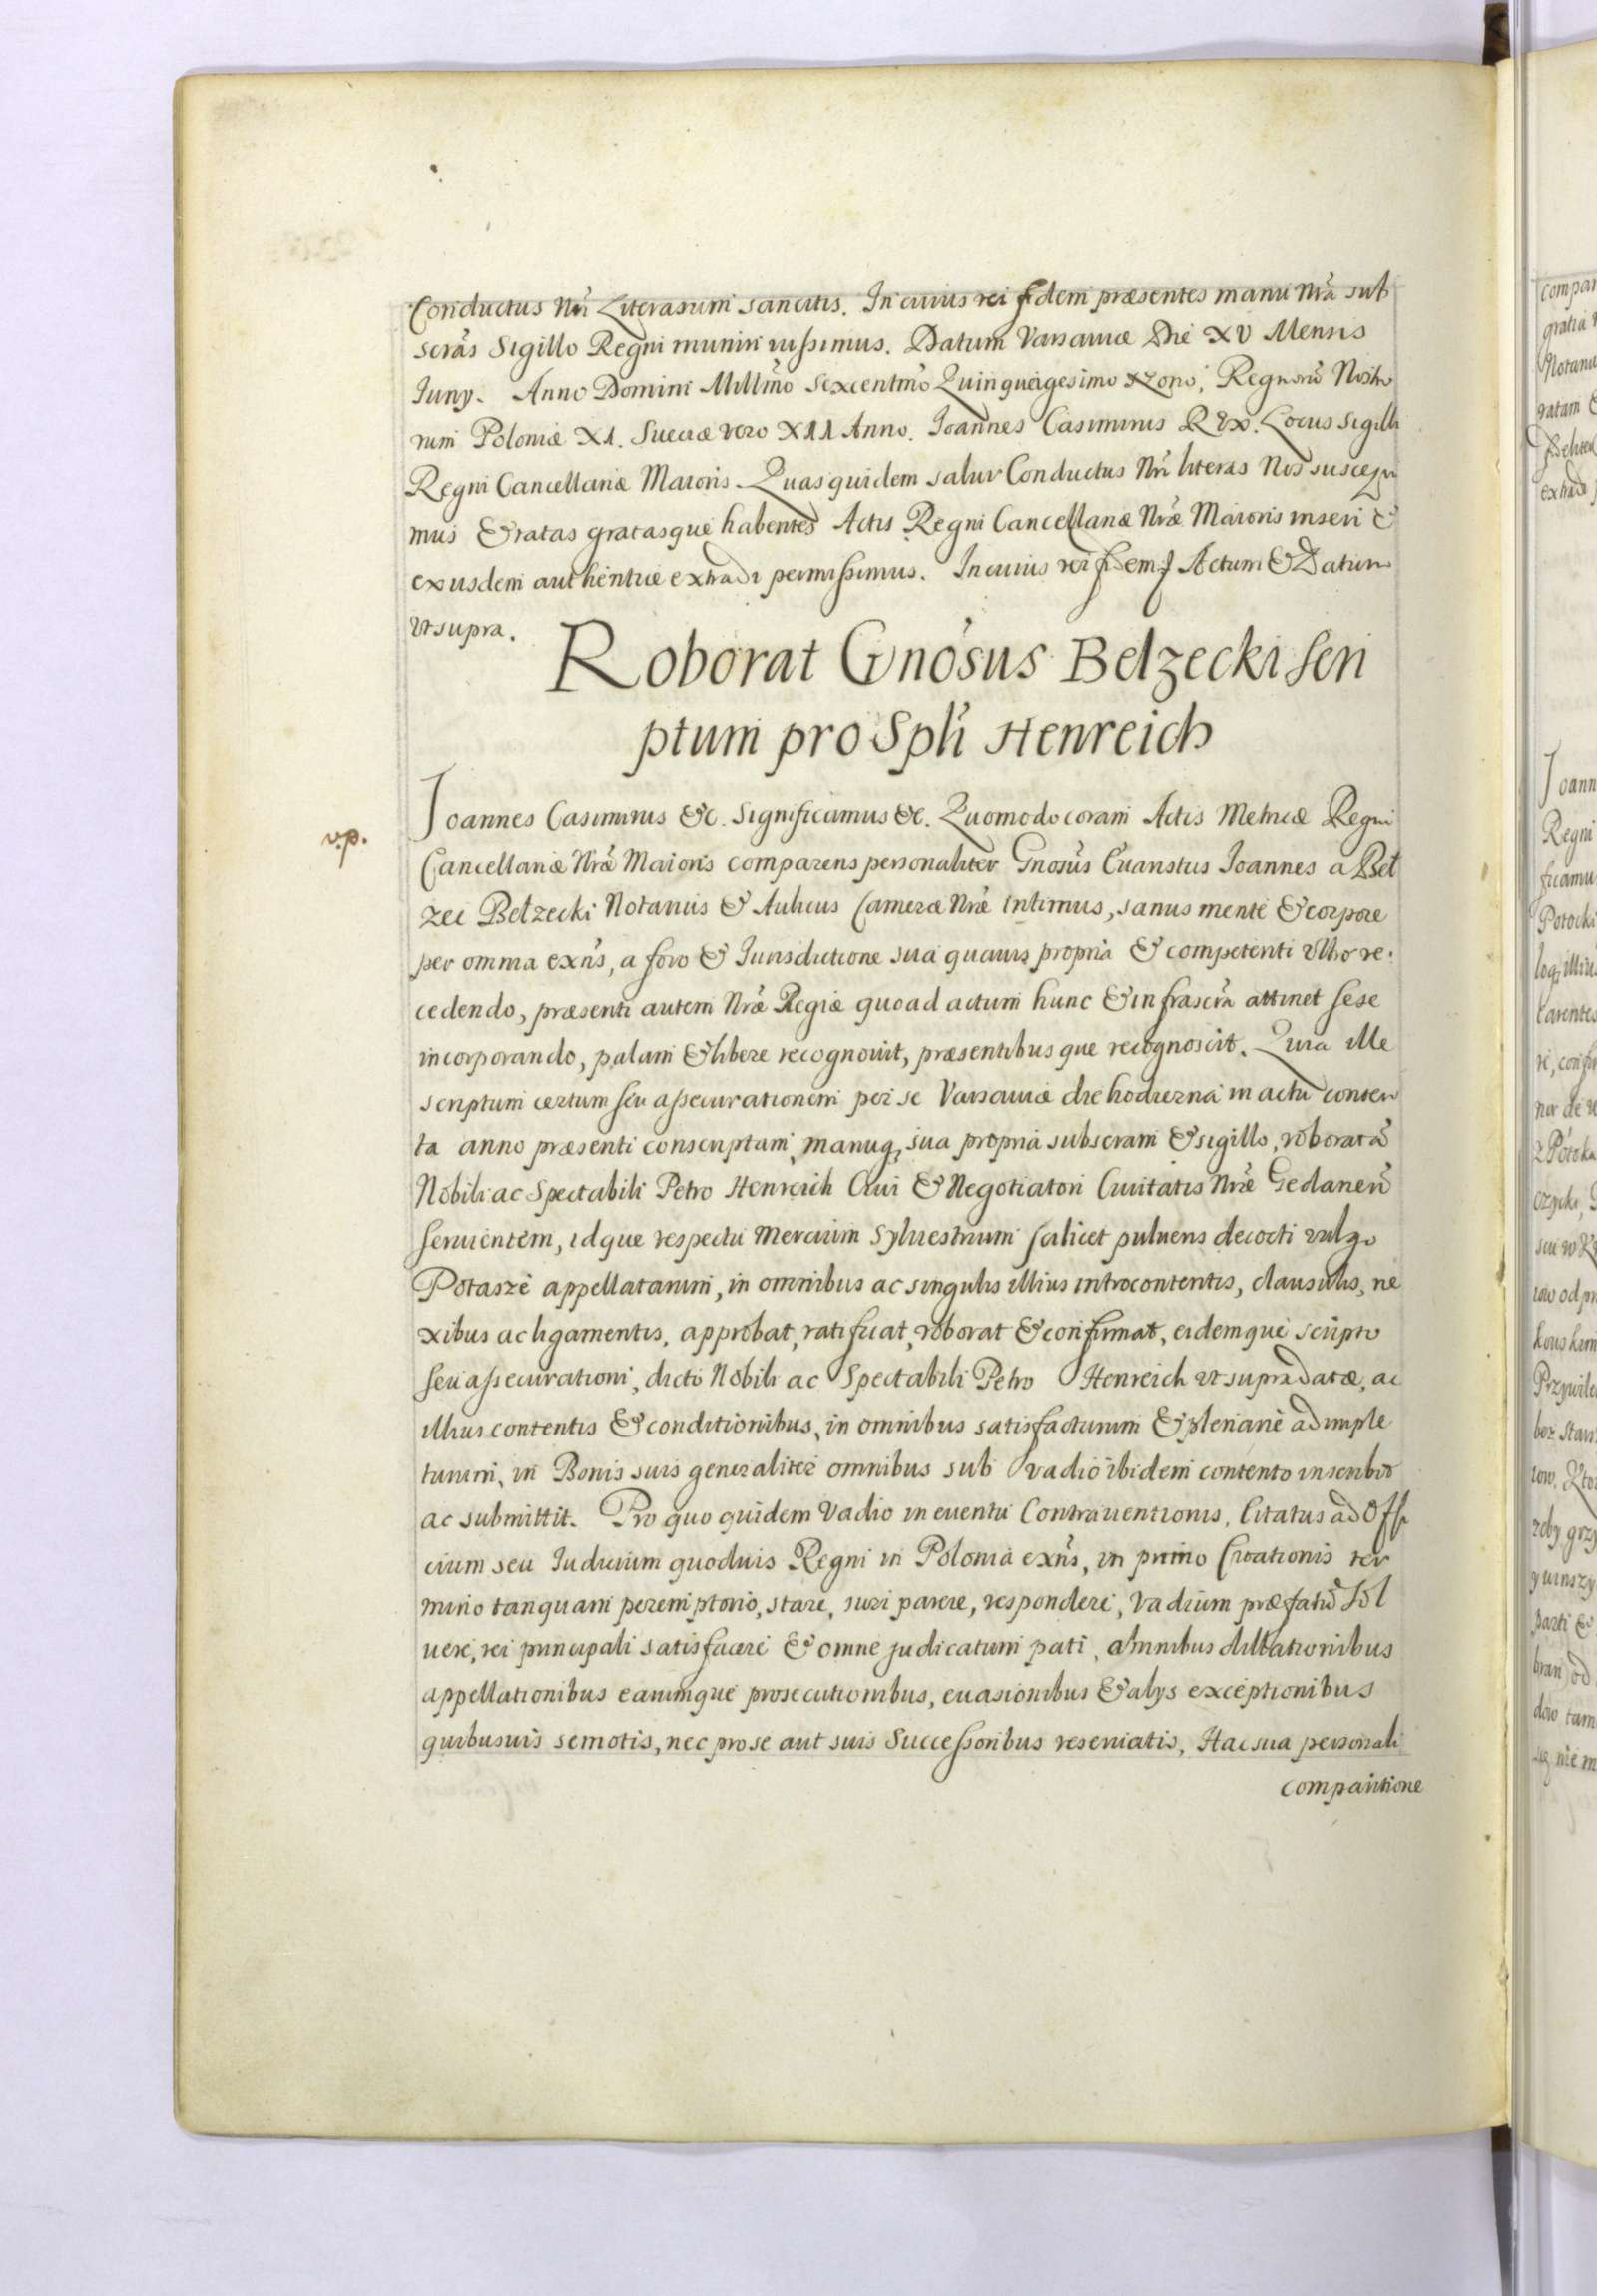 Conductus Nri Literarum sancitis. In cuius rei fidem præsentes manu Nra sub
scrās Sigillo Regni muniri iussimus. Datum Varsaviæ Die XV Mensis
Iuny. Anno Domini Millmo sexcentmo Quinquagesimo Regnorū Nostro
rum Poloniæ XI. Sueciæ vero XII Anno. Ioannes Casimirus Rex. Locus Sigilli
Regni Cancellariæ Maioris. Quas quidem salvi Conductus Nri literas Nos suscepi
mus & ratas gratasque habentes Actis Regni Cancellariæ Nræ Maioris inseri &
ex iisdem authentice extradi permissimus. In cuius rei fidem Actum & Datum
ut supra.
Roborat Gnosus Bełzecki scri
ptum pro Spli Henreich
v.p.
Ioannes Casimirus &c. Significamus &c. Quomodo coram Actis Metricæ Regni
Cancellariæ Nræ Maioris comparens personaliter Gnosus Evaristus Ioannes a Beł
zec Bełzecki Notarius & Aulicus Cameræ Nræ intimus, sanus mente & corpore
per omnia exns, a foro & Iurisdictione sua quavis propria & competenti ultro re-
cedendo, præsenti autem Nræ Regiæ quoad actum hunc & infrascra attinet sese
incorporando, palam & libere recognovit, præsentibusque recognoscit. Quia ille
scriptum certum seu assecurationem per se Varsaviæ die hodierna in actu conten
ta anno præsenti conscriptam, manuq, sua propria subscram & sigillo, roboratā
Nobili ac Spectabili Petro Henreich Civi & Negotiatori Civitatis Nræ Gedanen
servientem, idque respectu Mercium Sylvestrium scilicet pulveris decocti vulgo
Potasze appellatarum, in omnibus ac singulis illius introcontentis, clausulis, ne
xibus ac ligamentis, approbat, ratificat, roborat & confirmat, eidemque scripto
seu assecurationi, dicto Nobili ac Spectabili Petro Henreich ut supra datæ, ac
illius contentis & conditionibus, in omnibus satisfacturum & plenarie adimple
turum, in Bonis suis generaliter omnibus sub vadio ibidem contento inscribit
ac submittit. Pro quo quidem Vadio in eventu Contraventionis, Citatus ad Offi
cium seu Iudicium quodvis Regni in Polonia exns, in primo Citationis ter
mino tanquam peremptorio, stare, iuri parere, respondere, Vadium præfatū sol
vere, rei principali satisfacere & omne judicatum pati, omnibus dillationibus
appellationibus earumque prosecutionibus, evasionibus & alys exceptionibus
quibusvis semotis, nec pro se aut suis Successoribus reservatis, Hac sua personali
comparitione